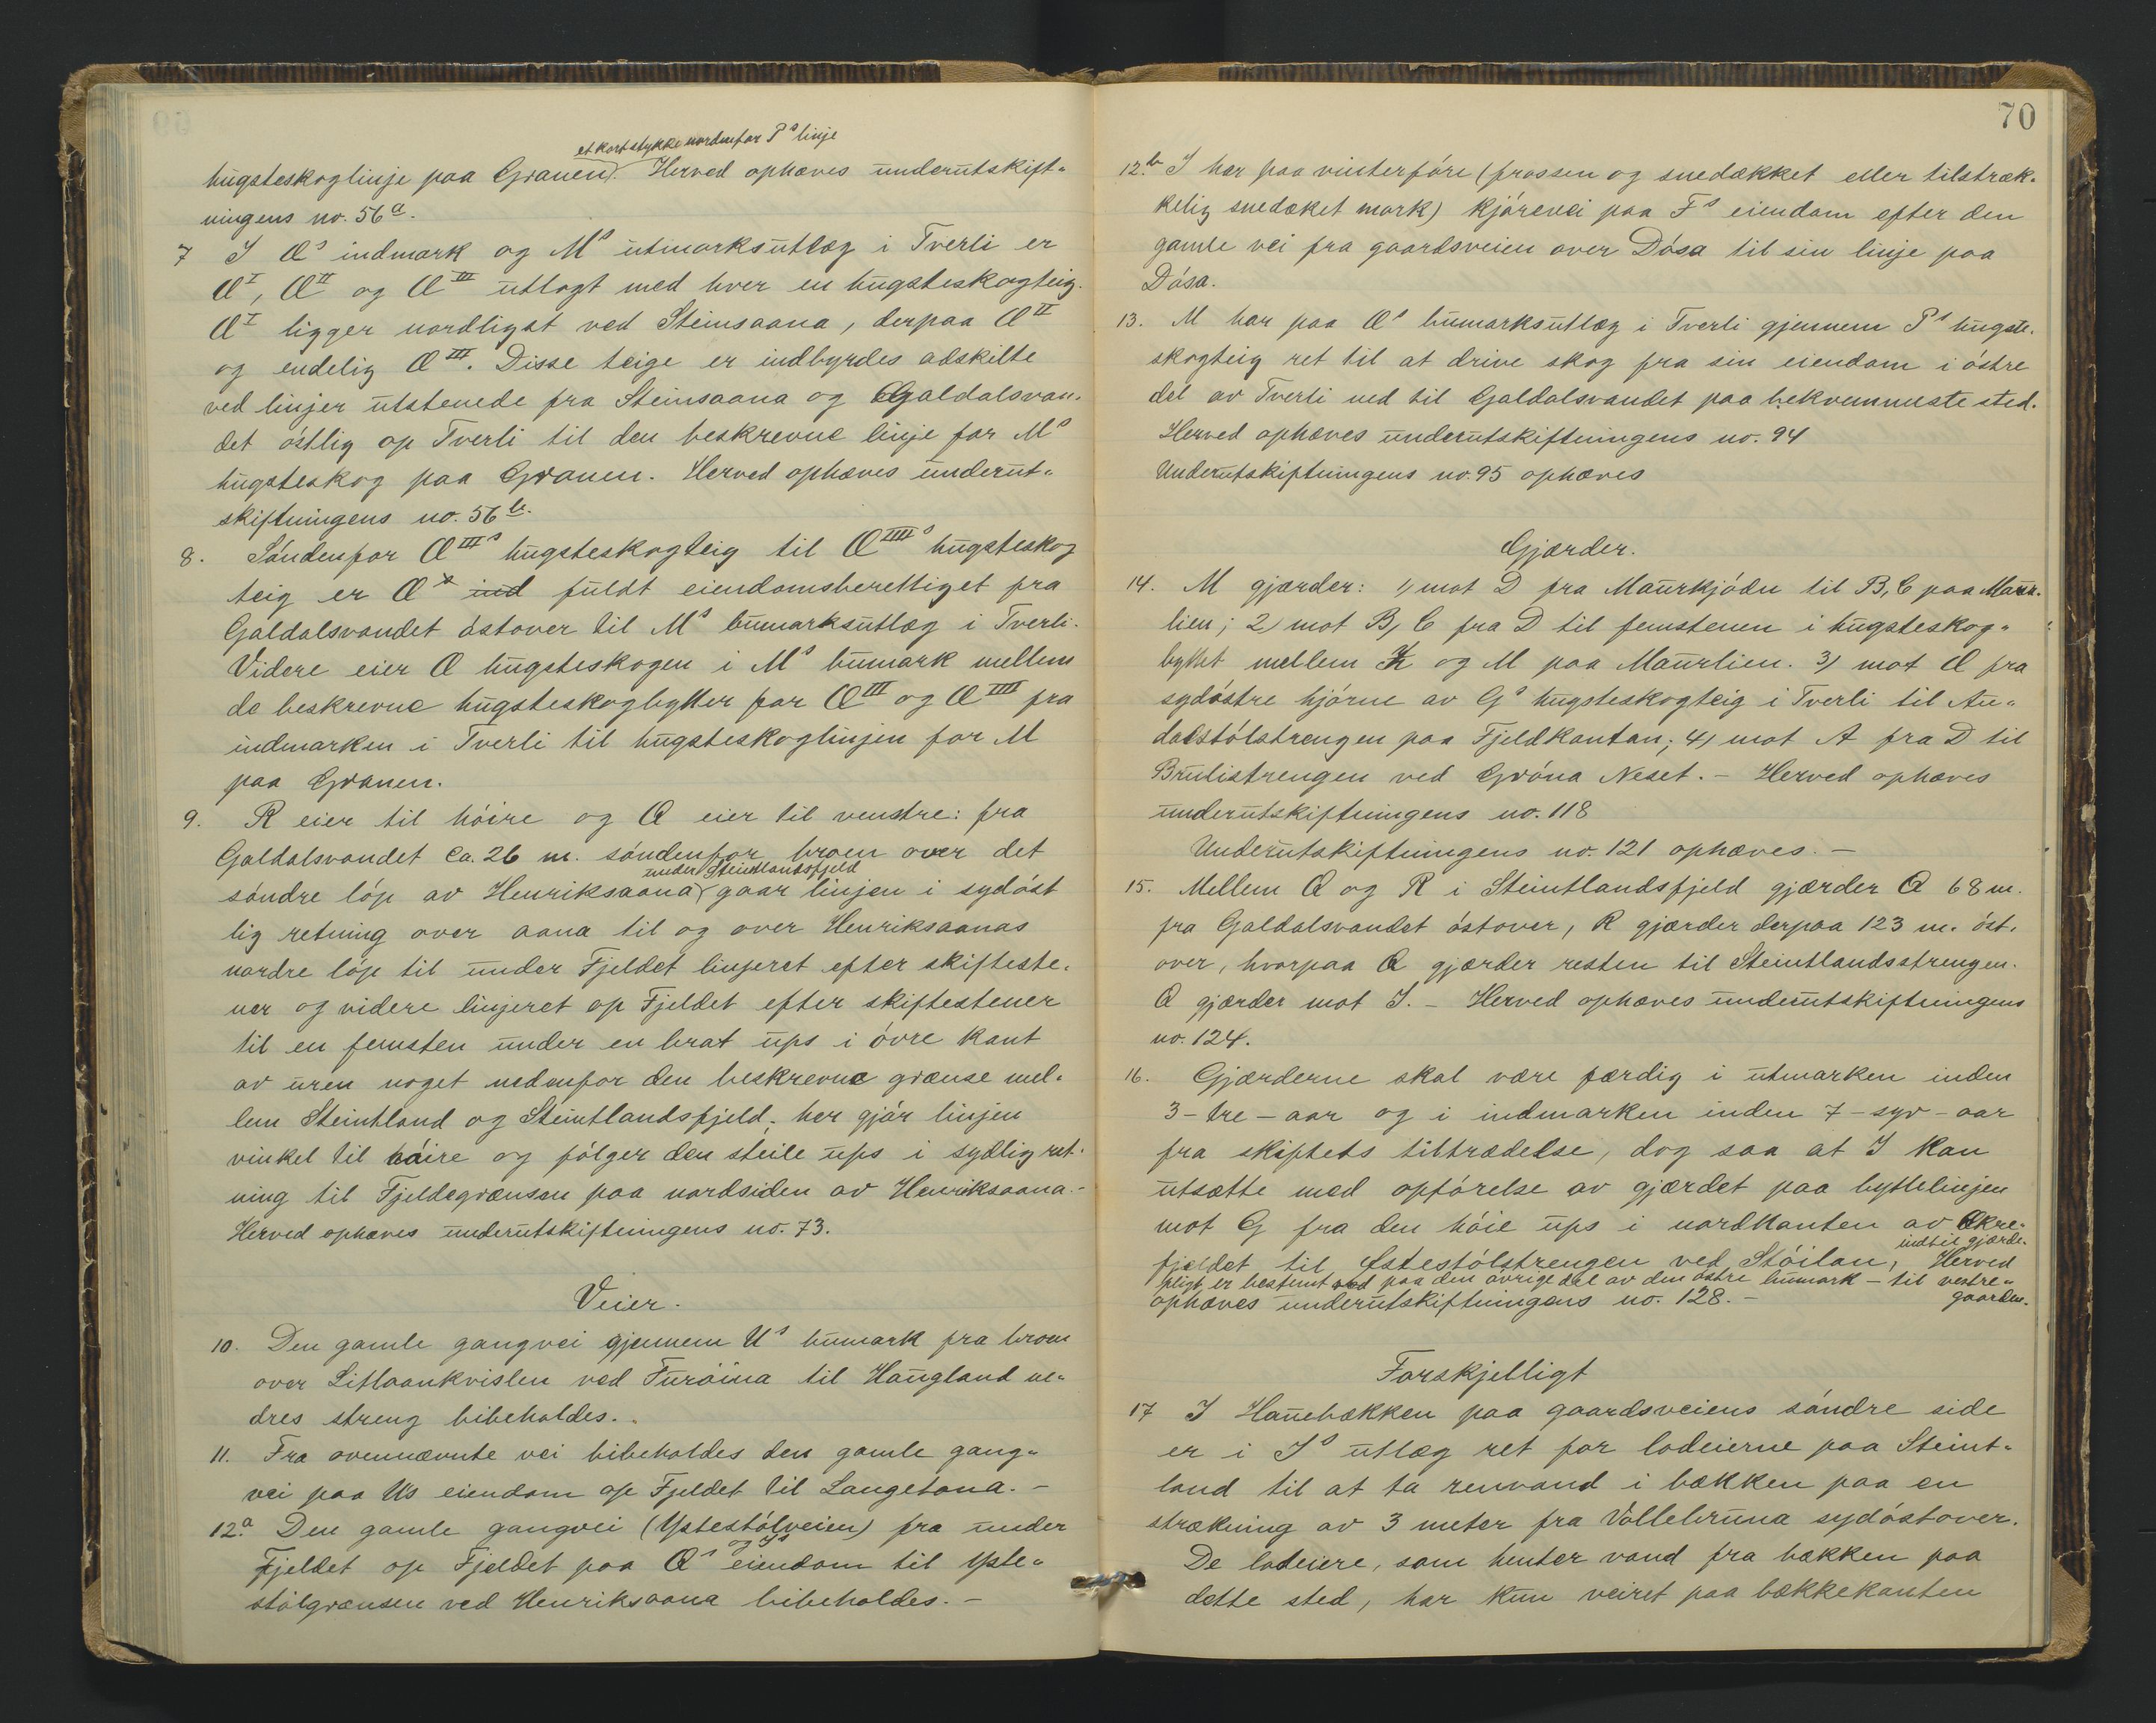 et kort stykke nordenfor Pˢ linje
hugsteskoglinje paa Granen. Herved ophæves underutskift-
ningens no. 56ᵃ.
7 I Qˢ indmark og Mˢ utmarksutlæg i Tverli er
Qᴵ, Qᴵᴵ og Qᴵᴵᴵ utlagt med hver en hugsteskogteig.
Qᴵ ligger nordligst ved Steinsaana, derpaa Qᴵᴵ
og endelig Qᴵᴵᴵ. Disse teige er indbyrdes adskilte
ved linjer utstenede fra Steinsaana og Galdalsvan-
det østlig op Tverli til den beskrevne linje for Mˢ
hugsteskog paa Granen. Herved ophæves underut-
skiftningens no. 56ᵇ.
8. Søndenfor Qᴵᴵᴵˢ hugsteskogteig til Qᴵᴵᴵᴵˢ hugsteskog
teig er Q ind fuldt eiendomsberettiget fra
Galdalsvandet østover til Mˢ bumarksutlæg i Tverli.
Videre eier Q hugsteskogen i Mˢ bumark mellem
de beskrevne hugsteskogbytter for Qᴵᴵᴵ og Qᴵᴵᴵᴵ fra
indmarken i Tverli til hugsteskoglinjen for M
paa Granen.
9. R eier til høire og Q eier til venstre: fra
Galdalsvandet ca. 26 m. søndenfor broen over det
under Steintlandsfjeld
søndre løp av Henriksaana gaar linjen i sydøst
lig retning over aana til og over Henriksaanas
nordre løp til under Fjeldet linjeret efter skifteste-
ner og videre linjeret op Fjeldet efter skiftestener
til en femsten under en brat ups i øvre kant
av uren noget nedenfor den beskrevne grænse mel-
lem Steintland og Steintlandsfjeld; her gjør linjen
vinkel til høire og følger den steile ups i sydlig ret-
ning til Fjeldegrænsen paa nordsiden av Henriksaana.-
Herved ophæves underutskiftningens no. 73.
Veier.
10. Den gamle gangvei gjennem Uˢ bumark fra broen
over Litlaankvislen ved Furøina til Haugland ne-
dres streng bibeholdes.
11. Fra ovennævnte vei bibeholdes den gamle gang-
vei paa Us eiendom op Fjeldet til Langetona. -
12.ᵃ Den gamle gangvei (Ystestølveien) fra under
og Iˢ
Fjeldet op Fjeldet paa Qˢ eiendom til Yste-
stølgrænsen ved Henriksaana bibeholdes. -
70
12.ᵇ I har paa vinterføre (frossen og snedækket eller tilstræk-
kelig snedæket mark) kjørevei paa Fˢ eiendom efter den
gamle vei fra gaardsveien over Døsa til sin linje paa
Døsa.
13. M har paa Qˢ bumarksutlæg i Tverli gjennem Pˢ hugste-
skogteig ret til at drive skog fra sin eiendom i østre
del av Tverli ned til Galdalsvandet paa bekvemmeste sted.
Herved ophæves underutskiftningens no. 94
Underutskiftningens no. 95 ophæves
Gjærder.
14. M gjærder: 1) mot D fra Maurkjødn til B, C paa Maur-
lien; 2) mot B, C fra D til femstenen i hugsteskog-
byttet mellem K og M paa Maurlien. 3) mot Q fra
sydøstre hjørne av Gˢ hugsteskogteig i Tverli til Au-
dalstølstrengen paa Fjeldkanten; 4) mot A fra D til
Brulistrengen ved Grøna Neset. - Herved ophæves
underutskiftningens no. 118
Underutskiftningens no. 121 ophæves. -
15. Mellem Q og R i Steintlandsfjeld gjærder Q 68 m.
fra Galdalsvandet østover, R gjærder derpaa 123 m. øst-
over, hvorpaa Q gjærder resten til Steintlandsstrengen.
Q gjærder mot I. - Herved ophæves underutskiftningens
no. 124.
16. Gjærderne skal være færdig i utmarken inden
3 - tre - aar og i indmarken inden 7 - syv - aar
fra skiftets tiltrædelse, dog saa at I kan
utsætte med opførelse av gjærdet paa byttelinjen
mot G fra den høie ups i nordkanten av Økre-
indtil gjærde-
fjeldet til Ystestølstrengen ved Støilan, Herved
pligt er bestemt paa den øvrige del av den østre bumark - til vestre-
gaarden.
ophæves underutskiftningens no. 128. -
Forskjelligt
17 I Hanebækken paa gaardsveiens søndre side
er i Iˢ utlæg ret for lodeierne paa Steint-
land til at ta renvand i bækken paa en
strækning av 3 meter fra Vollebruna sydøstover.
De lodeiere, som henter vand fra bækken paa
dette sted, har kun veiret paa bækkekanten